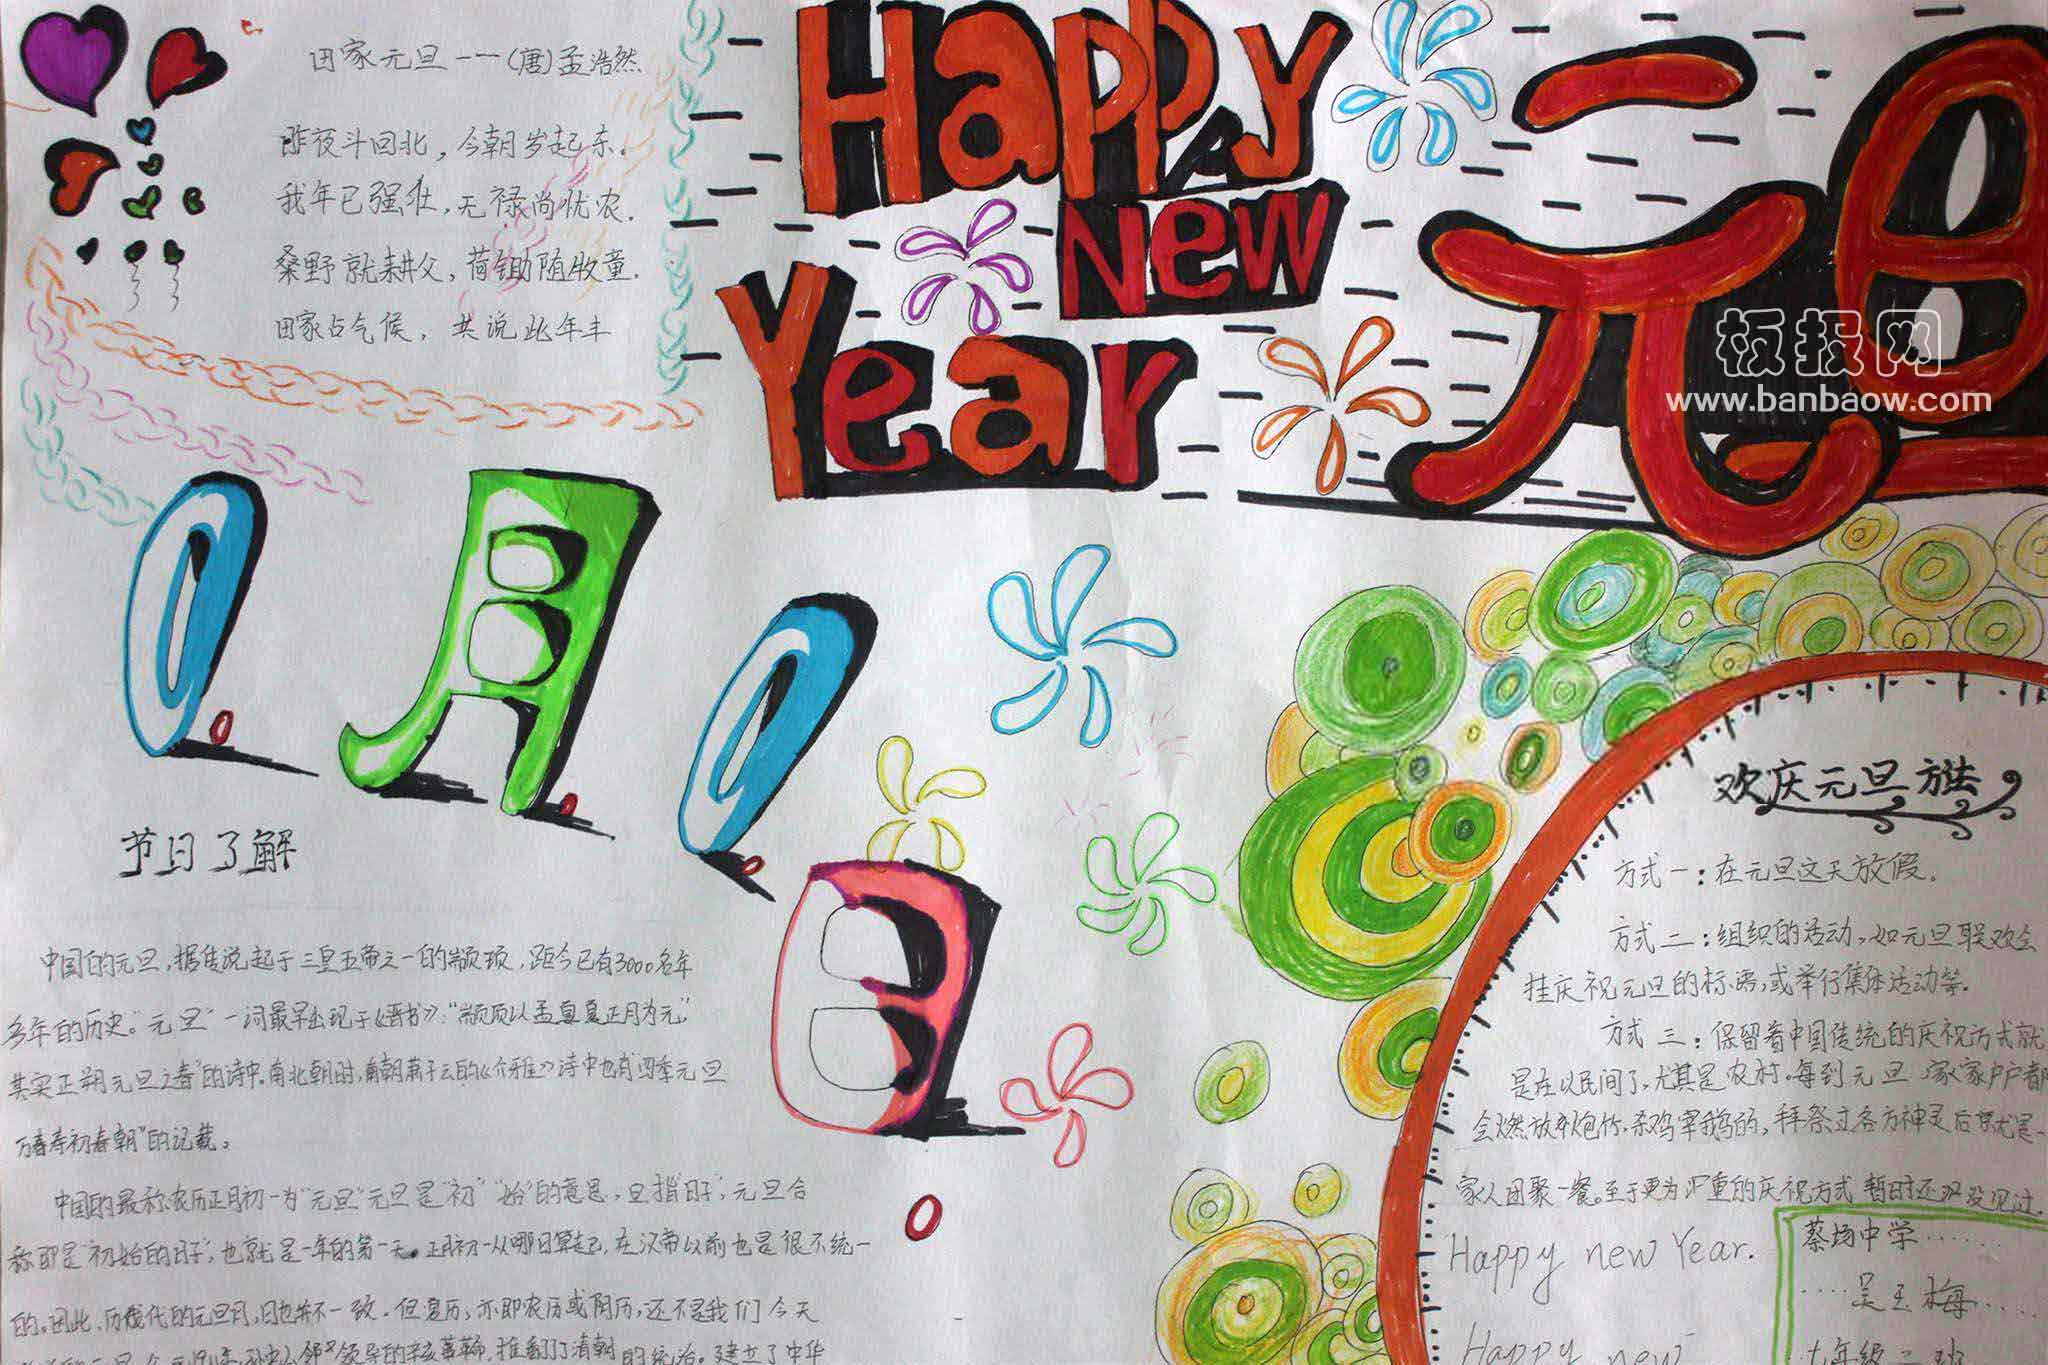 田家元旦——(唐)孟浩然
昨夜斗回北，今朝岁起东。
我年已强壮，无禄尚忧农。
桑野就耕父，荷锄随牧童。
田家占气候，共说此年丰
Happy
New
Year
元旦
板报网
www.banbaow.com
1月1日
节日了解
中国的元旦，据传说起于三皇五帝之一的颛顼，距今已有3000多年
多年的历史。"元旦"一词最早出现于《晋书》："颛顼以孟夏正月为元，
其实正朔元旦之春"的诗中。南北朝时，南朝萧子云的《介雅》诗中也有"四季元旦
万寿初春朝"的记载。
中国的最称农历正月初一为"元旦"元旦是"初""始"的意思，旦指"日子"，元旦合
称即是"初始的日子"，也就是一年的第一天。正月初一从哪日算起，在汉帝以前也是很不统一
的。因此，历代的元旦月，日也并不一致。但夏历，亦即农历或阴历，还不是我们今天
领导的辛亥革命，推翻了清朝的统治。建立了中华
欢庆元旦方法
方式一：在元旦这天放假。
方式二：组织的活动，如元旦联欢会
挂庆祝元旦的标语，或举行集体活动等。
方式三：保留着中国传统的庆祝方式就
是在以民间了，尤其是农村。每到元旦，家家户户都
会燃放炮竹，杀鸡宰鹅的，拜祭过各方神灵后就是一
家人团聚一餐。至于更为严重的庆祝方式暂时还没见过。
Happy new Year.
Happy new
蔡场中学……
……吴玉梅……
七年级二班